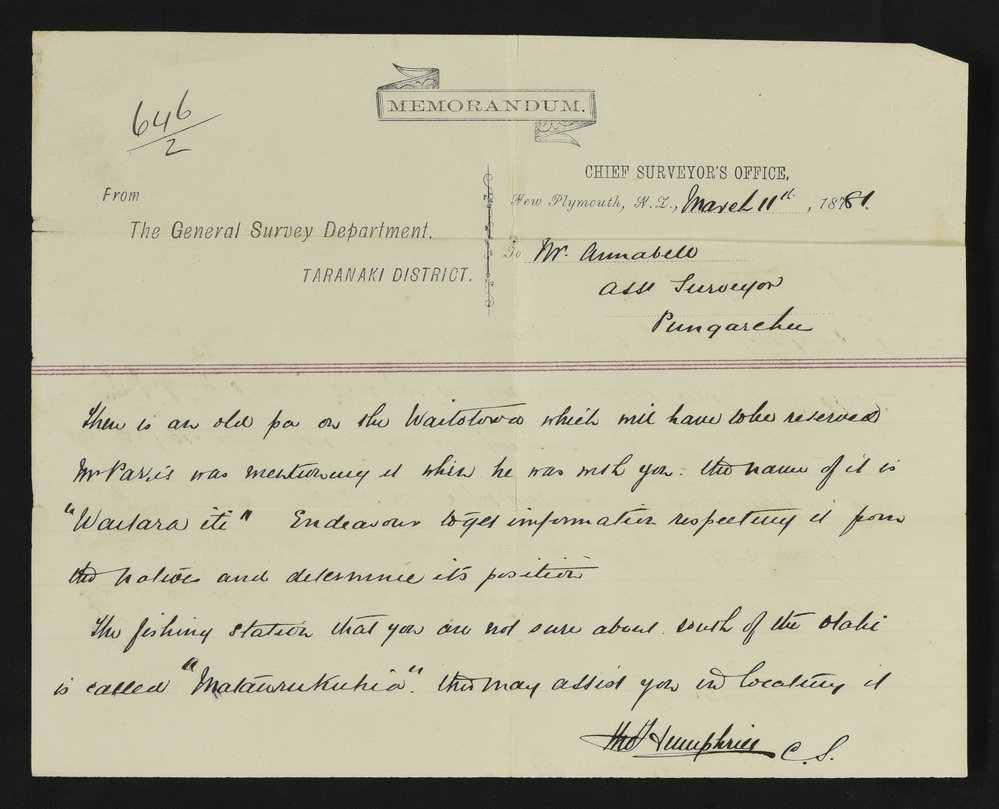 MEMORANDUM.
646/2
CHIEF SURVEYOR'S OFFICE,
New Plymouth, N.Z., March 11th, 1881.
From
The General Survey Department.
TARANAKI DISTRICT.
To Mr. Annabell
Asst Surveyor
Pungarehu
There is an old pa on the Waitotoroa which will have to be reserved
Mr Parris was mentioning it when he was with you. the name of it is
"Waitara iti" Endeavour to get information respecting it from
the natives and determine its position
The fishing station that you are not sure about south of the Otahi
is called "Mataurukuhia". this may assist you in locating it
Thos Humphries C.S.